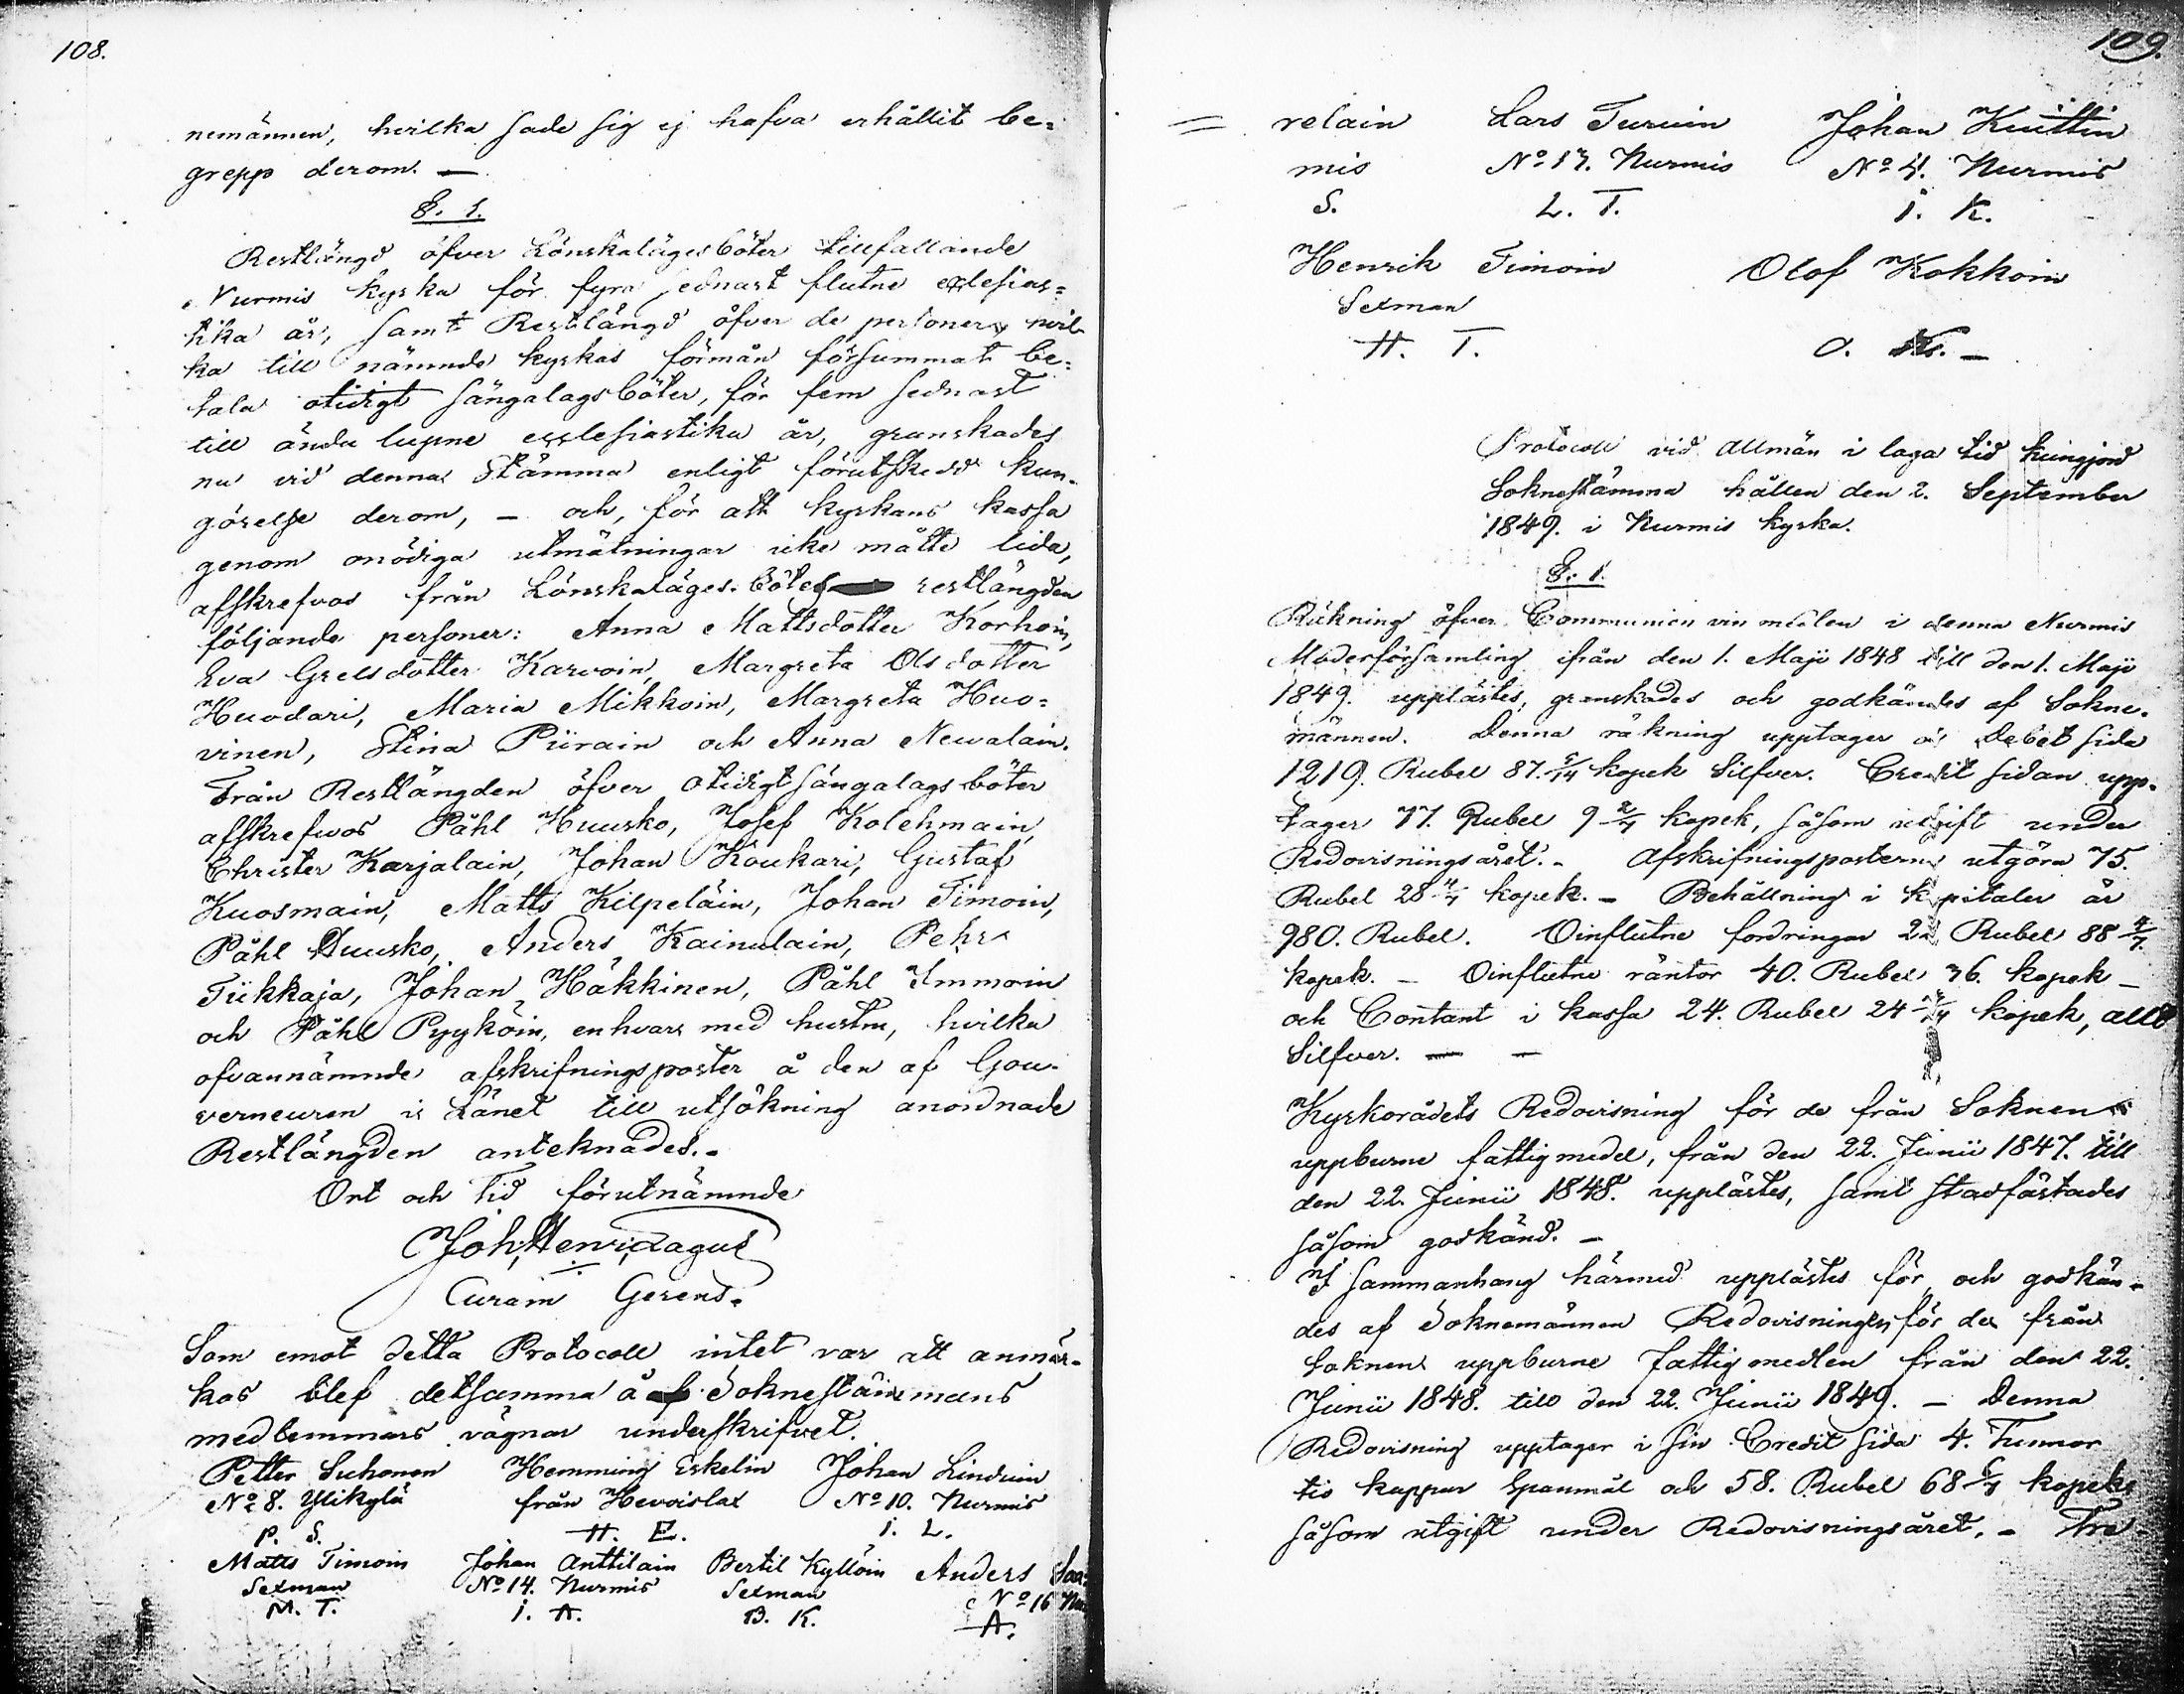 108.
nemännen, hvilka sade sig ej hafva erhållit be=
grepp derom. —
§. 1.
Restlängd öfver Lönskalägesböter tillfallande
Nurmis kyrka för fyra sednast flutne ecclesias=
tika år, samt Restlängd öfver de personer, hvil
ka till nämnde kyrkas förmån försummat be=
tala otidigt sängalagsböter, för fem sednast
till ända lupne ecclesiastika år, granskades
nu vid denna Stämma enligt förutskedd kun-
görelse derom, — och, för att kyrkans kassa
genom onödiga utmätningar icke måtte lida,
afskrefvos från Lönskaläges-böter restlängden
följande personer: Anna Mattsdotter Korhoin,
Eva Grelsdotter Karvoin, Margreta Olsdotter
Huodari, Maria Mikkoin, Margreta Huo=
vinen, Stina Piirain och Anna Newalain.
Från Restlängden öfver otidigt sängalagsböter
afskrefvos Påhl Huusko, Josef Kolehmain,
Christer Karjalain, Johan Koukari, Gustaf
Kuosmain, Matts Kilpeläin, Johan Timoin,
Påhl Huusko, Anders Kainulain, Pehr
Tiikkaja, Johan Häkkinen, Påhl Immoin
och Påhl Pyyköin, enhvar med hustru, hvilka
ofvannämnde afskrifningsposter å den af Gou-
verneuren i Länet till utsökning anordnade
Restlängden anteknades.-
Ort och Tid förutnämnde
Joh. Henr.
Curam Gerens.
Som emot detta Protocoll intet var att anmär-
kas blef detsamma å Soknestämmans
medlemmars vägnar underskrifvet.
Petter Suhonen Hemming Eskelin Johan Linduin
No 8. Ylikylä från Hevoislax No 10. Nurmis
P. S. H. E. I. L.
Matts Timoin Johan Anttilain Bertil Kyllöin Anders Saa=
Sexman No 14. Nurmis Sexman No 16 Nur
M. T. I. A. B. K. A.
109.
= relain Lars Turuin Johan Kuittin
mis No 17. Nurmis No 4. Nurmis
S. L. T. I. K.
Henrik Timoin Olof Kokkoin
Sexman
H. T. O. K. —
Protocoll vid allmän i laga tid kungjord
Soknestämma hållen den 2. September
1849. i Nurmis kyrka.
§. 1.
Räkning öfver Communion vin medlen i denna Nurmis
Moderförsamling ifrån den 1. Maji 1848 till den 1. Maji
1849. upplästes, granskades och godkändes af Sokne-
männen. Denna räkning upptager å Debet sida
1219. Rubel 87. 5/14 kopek Silfver. Credit sidan upp-
tager 77. Rubel 9 2/7 kopek, såsom utgift under
Redovisningsåret.- Afskrifningsposterna utgöra 75.
Rubel 28 4/7 kopek. — Behållning i kapitaler är
980. Rubel. Oinflutne fordringar Rubel 88 4/7.
kopek. — Oinflutne räntor 40. Rubel 36. kopek —
och Contant i kassa 24. Rubel 24 kopek, allt
Silfver. — —
Kyrkorådets Redovisning för de från Soknen
uppburne fattigmedel, från den 22. Junii 1847. till
den 22. Junii 1848. upplästes, samt stadfästades
såsom godkänd. —
I sammanhang härmed upplästes för och godkän-
des af Soknemännen Redovisningen för de från
Soknen uppburne fattigmedlen från den 22.
Junii 1848. till den 22. Junii 1849. — Denna
Redovisning upptager i sin Credit sida 4. Tunnor
tio kappar Spanmål och 58. Rubel 68 6/7 kopek
såsom utgift under Redovisningsåret. — Tre